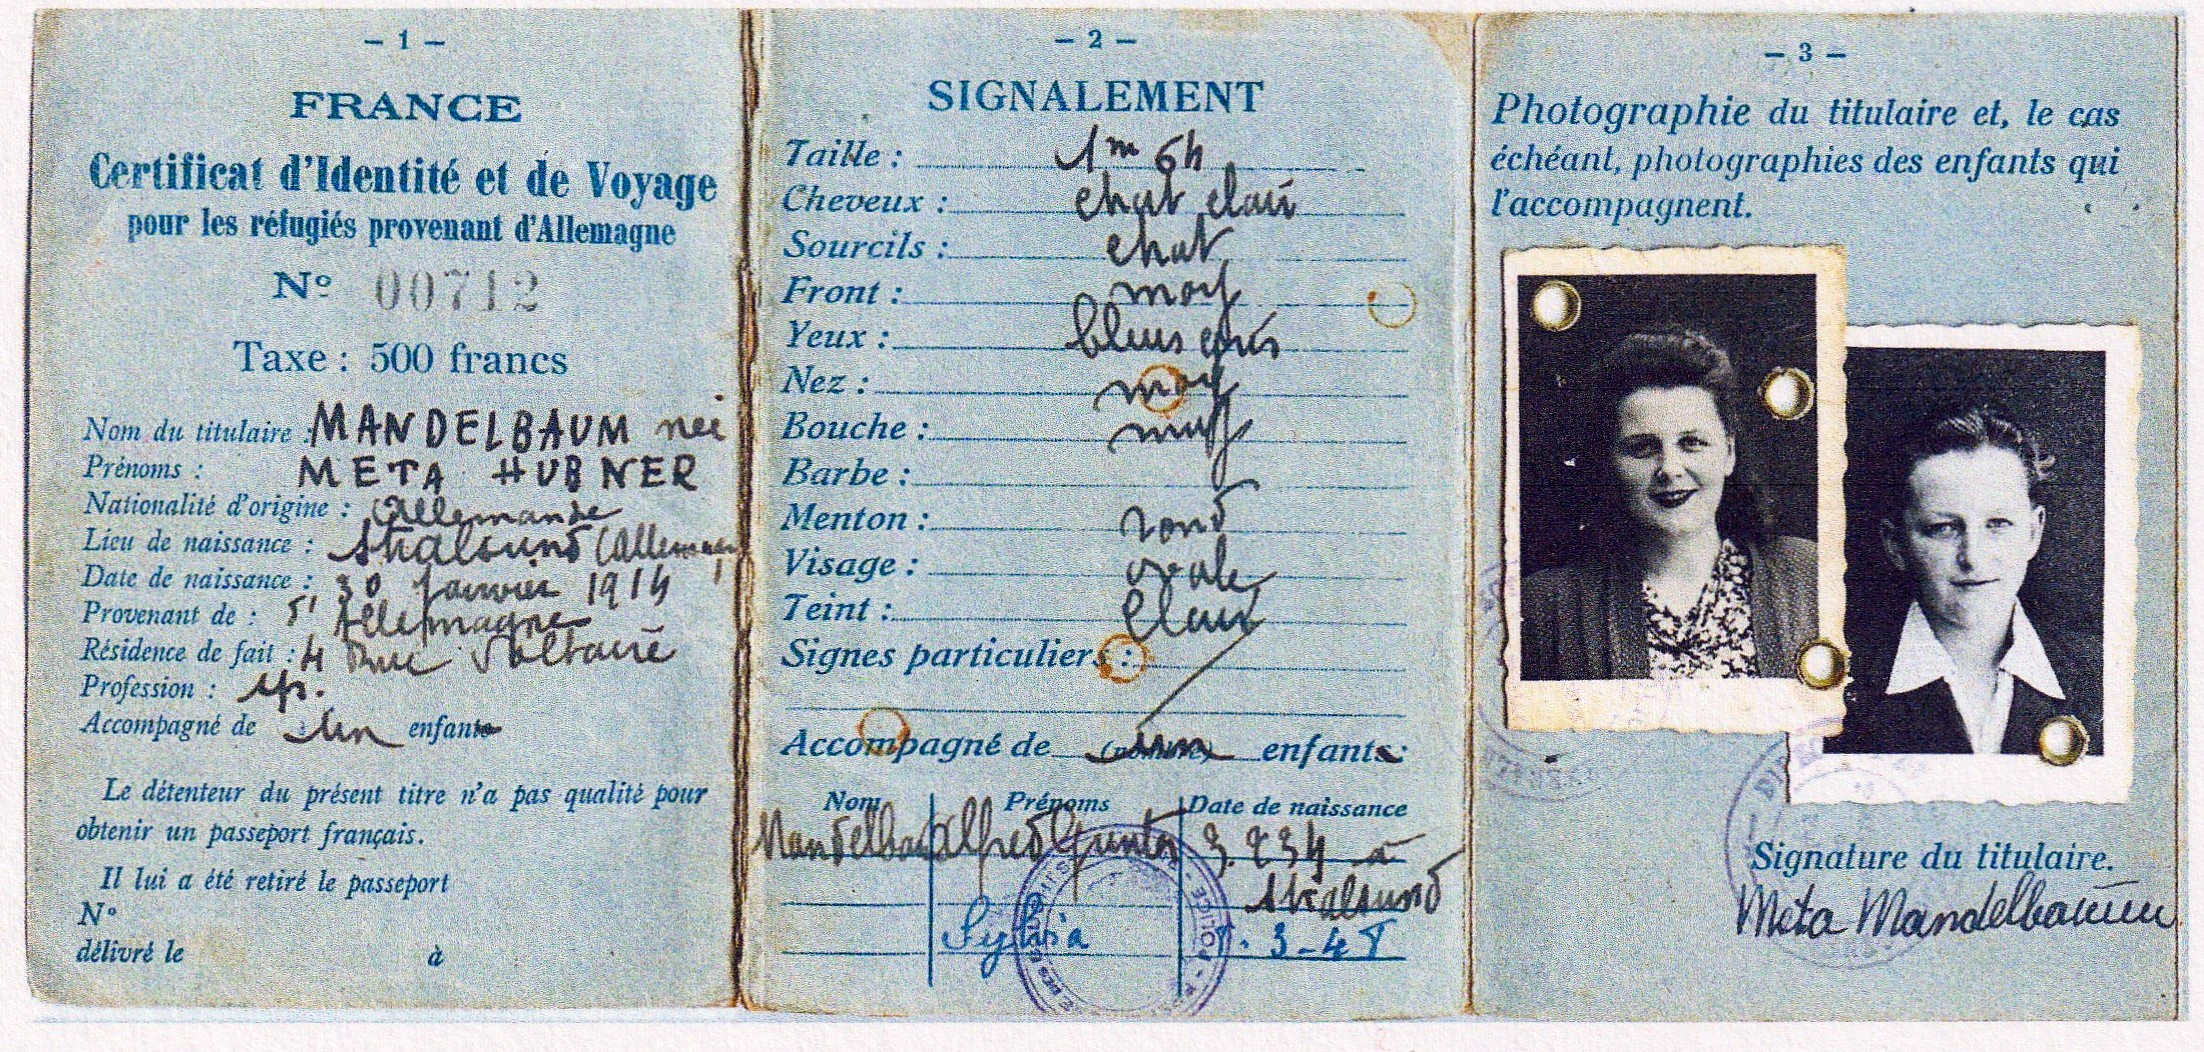 - 1 -
FRANCE
Certificat d'Identité et de Voyage
pour les réfugiés provenant d'Allemagne
N° 00712
Taxe : 500 francs
Nom du titulaire : MANDELBAUM neé
Prénoms : META HUBNER
Nationalité d'origine : Allemande
Lieu de naissance : Stralsund (Allemagne
Date de naissance : 30 Janvier 1914
Provenant de : d'Allemagne
Résidence de fait : 4 Rue Voltaire
Profession : sp.
Accompagné de un enfants
Le détenteur du présent titre n'a pas qualité pour
obtenir un passeport français.
Il lui a été retiré le passeport
N°
délivré le à
- 2 -
SIGNALEMENT
Taille : 1m 64
Cheveux : chat clair
Sourcils : chat
Front : moy
Yeux : bleus gris
Nez : moy
Bouche : moy
Barbe :
Menton : rond
Visage : ovale
Teint : clair
Signes particuliers :
Accompagné de (nombre) un enfants.
Nom Prénoms Date de naissance
Mandelbau Alfred Gunter 3.2 34 à
Stralsund
Sylvia 3-4
- 3 -
Photographie du titulaire et, le cas
échéant, photographies des enfants qui
l'accompagnent.
Signature du titulaire.
Meta Mandelbaum